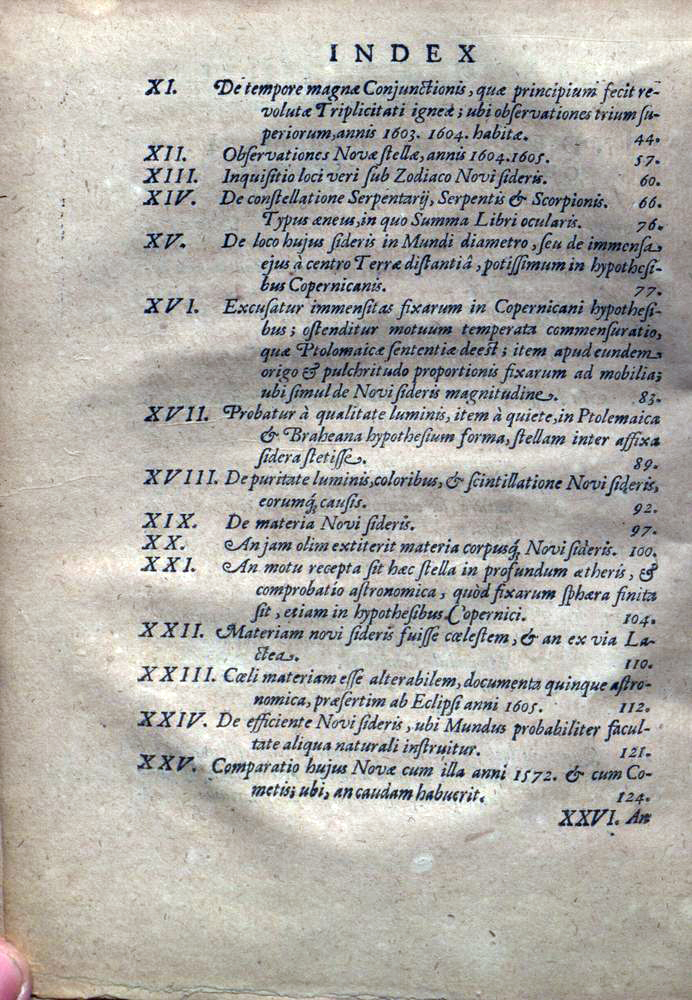 INDEX
XI. De tempore magnæ Conjunctionis, quæ principium fecit re-
volutæ Triplicitati igneæ; ubi observationes trium su-
periorum, annis 1603. 1604. habitæ. 44.
XII. Observationes Novæ stellæ, annis 1604. 1605. 57.
XIII. Inquisitio loci veri sub Zodiaco Novi sideris. 60.
XIV. De constellatione Serpentarij, Serpentis & Scorpionis. 66.
Typus æneus, in quo Summa Libri ocularis. 76.
XV. De loco hujus sideris in Mundi diametro, seu de immensa
ejus à centro Terræ distantiâ, potissimum in hypothesi-
bus Copernicanis. 77.
XVI. Excusatur immensitas fixarum in Copernicani hypothesi-
bus; ostenditur motuum temperata commensuratio,
quæ Ptolomaicæ sententiæ deest; item apud eundem
origo & pulchritudo proportionis fixarum ad mobilia;
ubi simul de Novi sideris magnitudine. 83.
XVII. Probatur à qualitate luminis, item à quiete, in Ptolemaica
& Braheana hypothesium forma, stellam inter affixa
sidera stetisse. 89.
XVIII. De puritate luminis, coloribus, & scintillatione Novi sideris,
eorumq́; causis. 92.
XIX. De materia Novi sideris. 97.
XX. An jam olim extiterit materia corpusq́; Novi sideris. 100.
XXI. An motu recepta sit hæc stella in profundum ætheris, &
comprobatio astronomica, quòd fixarum sphæra finita
sit, etiam in hypothesibus Copernici. 104.
XXII. Materiam novi sideris fuisse cœlestem, & an ex via La-
ctea. 110.
XXIII. Cœli materiam esse alterabilem, documenta quinque astro-
nomica, præsertim ab Eclipsi anni 1605. 112.
XXIV. De efficiente Novi sideris, ubi Mundus probabiliter facul-
tate aliqua naturali instruitur. 121.
XXV. Comparatio hujus Novæ cum illa anni 1572. & cum Co-
metis; ubi, an caudam habuerit. 124.
XXVI. An